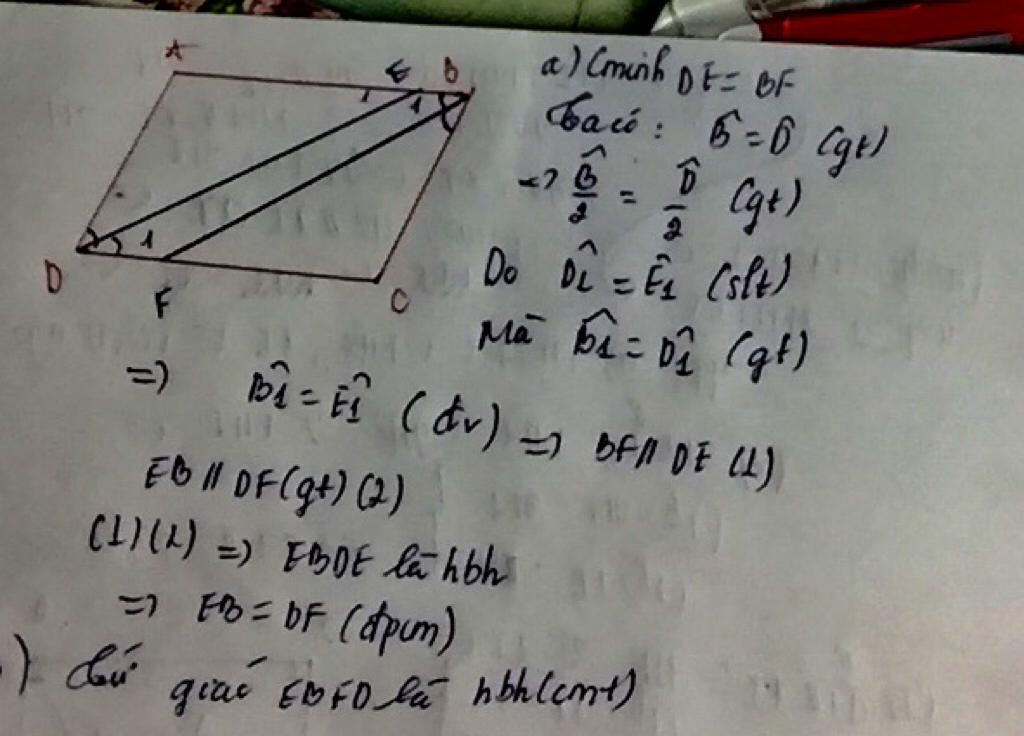 A E B
1 1
a) Cminh DE = BF
Ta có: B̂ = D̂ (gt)
=> B̂/2 = D̂/2 (gt)
D 1 F C
Do D̂1 = Ê1 (slt)
Mà B̂1 = D̂1 (gt)
=> B̂1 = Ê1 (đv) => BF // DE (1)
EB // DF (gt) (2)
(1)(2) => EBDE là hbh
=> EB = DF (đpcm)
) Tứ giác EBFD là hbh (cmt)